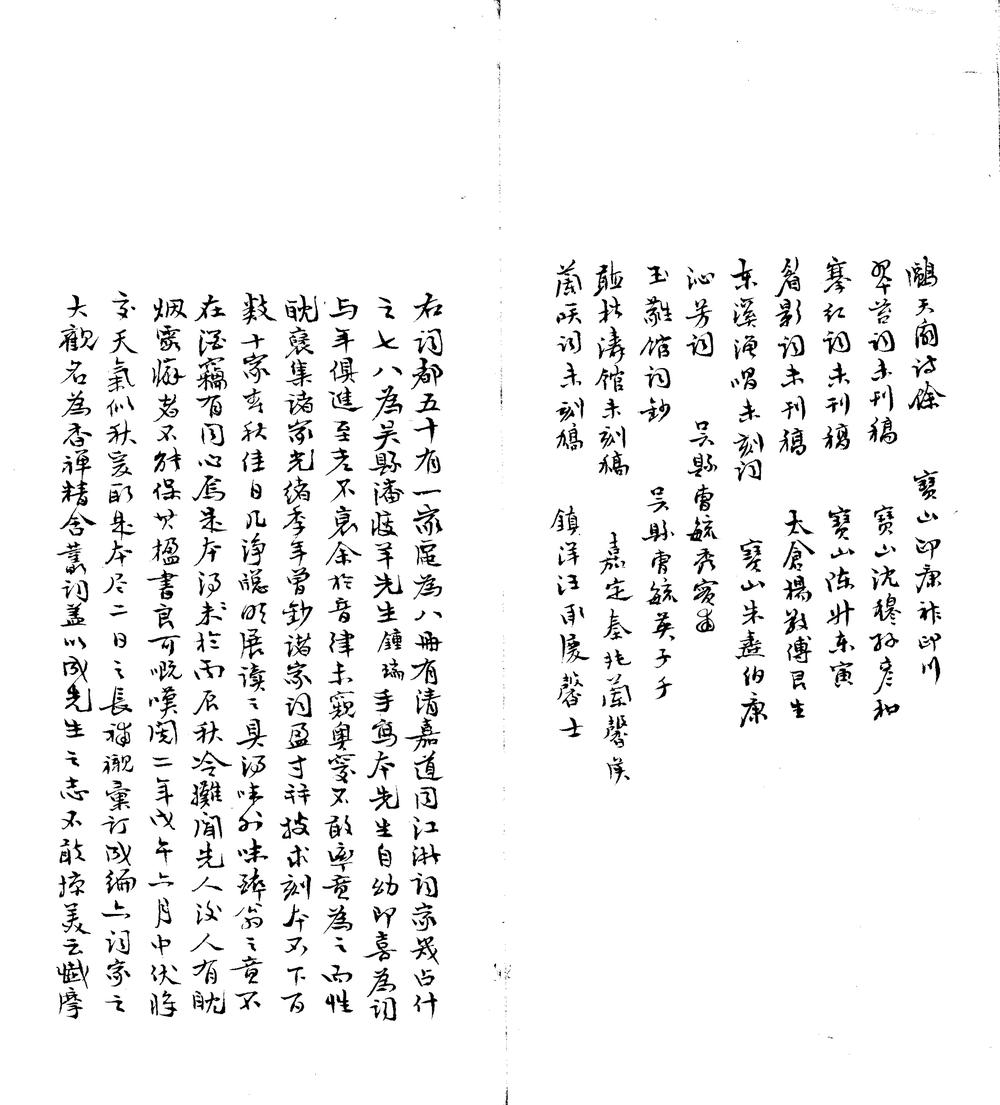 鷗天閣詩餘 寶山印康祚印川
翠苕詞未刊稿 寶山沈穆孫彥和
搴紅詞未刊稿 寶山陳升東寅
眉影詞未刊稿 太倉楊敬傅艮生
東溪漁唱未刻詞 寶山朱燾伯康
沁芳詞 吳縣曹毓秀實甫
玉雝館詞鈔 吳縣曹毓英子千
聽秋濤館未刻稿 嘉定秦兆蘭馨侯
蘭咲詞未刻稿 鎮洋汪承慶馨士
右詞都五十有一家釐為八冊有清嘉道同江浙詞家幾占什
之七八為吳縣潘瘦羊先生鍾瑞手寫本先生自幼即喜為詞
与年俱進至老不衰余於音律未窺奧窔不敢率意為之而性
耽裒集諸家光緒季年曾鈔諸家詞盈寸許披求刻本不下百
數十家春秋佳日几淨牕明展讀之具得味外味醉翁之意不
在酒竊有同心焉是本得來於丙辰秋冷攤聞先人沒人有耽
烟霞癖者不能保其楹書良可嘅嘆閱二年戊午六月中伏將
交天氣似秋爰取是本尽二日之長補襯彙訂成編亦詞家之
大觀名為香禪精舍叢詞蓋以成先生之志不敢掠美云懺摩